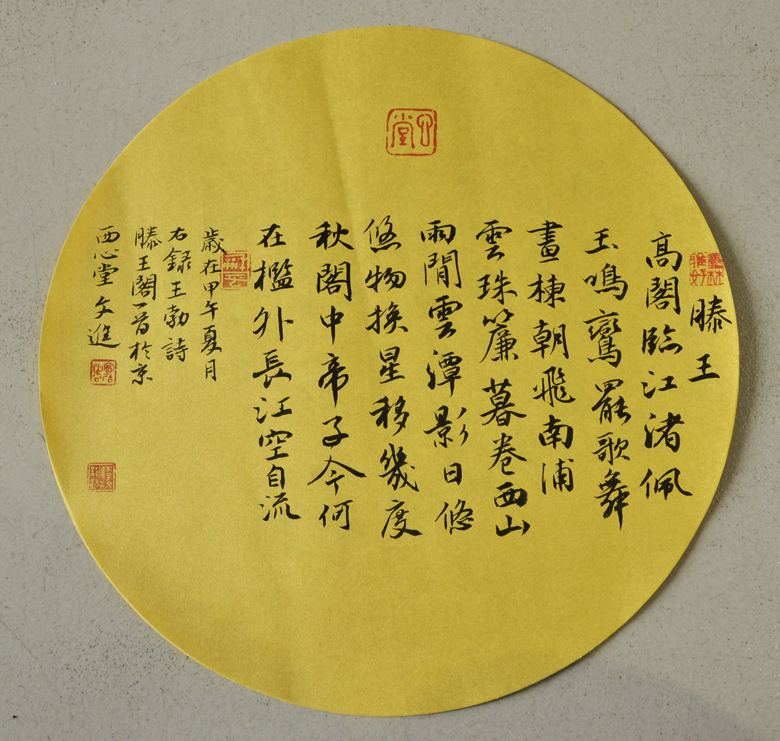 滕王
高閣臨江渚佩
玉鳴鸞罷歌舞
畫棟朝飛南浦
雲珠簾暮卷西山
雨閒雲潭影日悠
悠物換星移幾度
秋閣中帝子今何
在檻外長江空自流
歲在甲午夏月
右錄王勃詩
滕王閣一首於京
西心堂文進